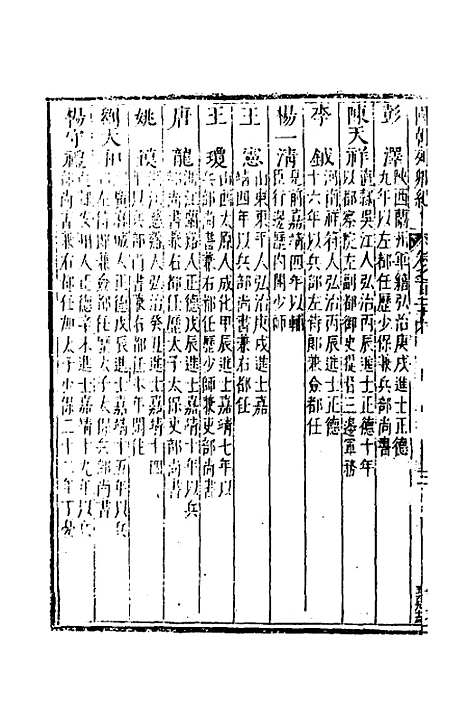 國朝列卿紀
彭澤 陝西蘭州軍籍弘治庚戌進士正德
九年以左都任歷少保兼兵部尚書
陳天祥 直隸吳江人弘治丙辰進士正德十年
以都察院左副都御史提督三邊軍務
李鉞 河南祥符人弘治丙辰進士正德
十六年以兵部左侍郎兼僉都任
楊一清 見前嘉靖四年以輔
臣行邊歷內閣少師
王憲 山東東平人弘治庚戌進士嘉
靖六年以兵部尚書兼右都任
王瓊 山西太原人成化甲辰進士嘉靖七年以
兵部尚書兼右都任歷少師兼吏部尚書
唐龍 浙江蘭谿人正德戊辰進士嘉靖十年以兵
部尚書兼右都任歷太子太保吏部尚書
姚鏌 浙江慈谿人弘治癸丑進士嘉靖十四
年以兵部尚書兼右都任未任閒住
劉天和 湖廣麻城人正德戊辰進士嘉靖十五年以兵
部左侍郎兼僉都任歷太子太保兵部尚書
楊守禮 人正德辛未進士嘉靖十九年以兵
部尚書兼右都任加太子少保二十二年丁